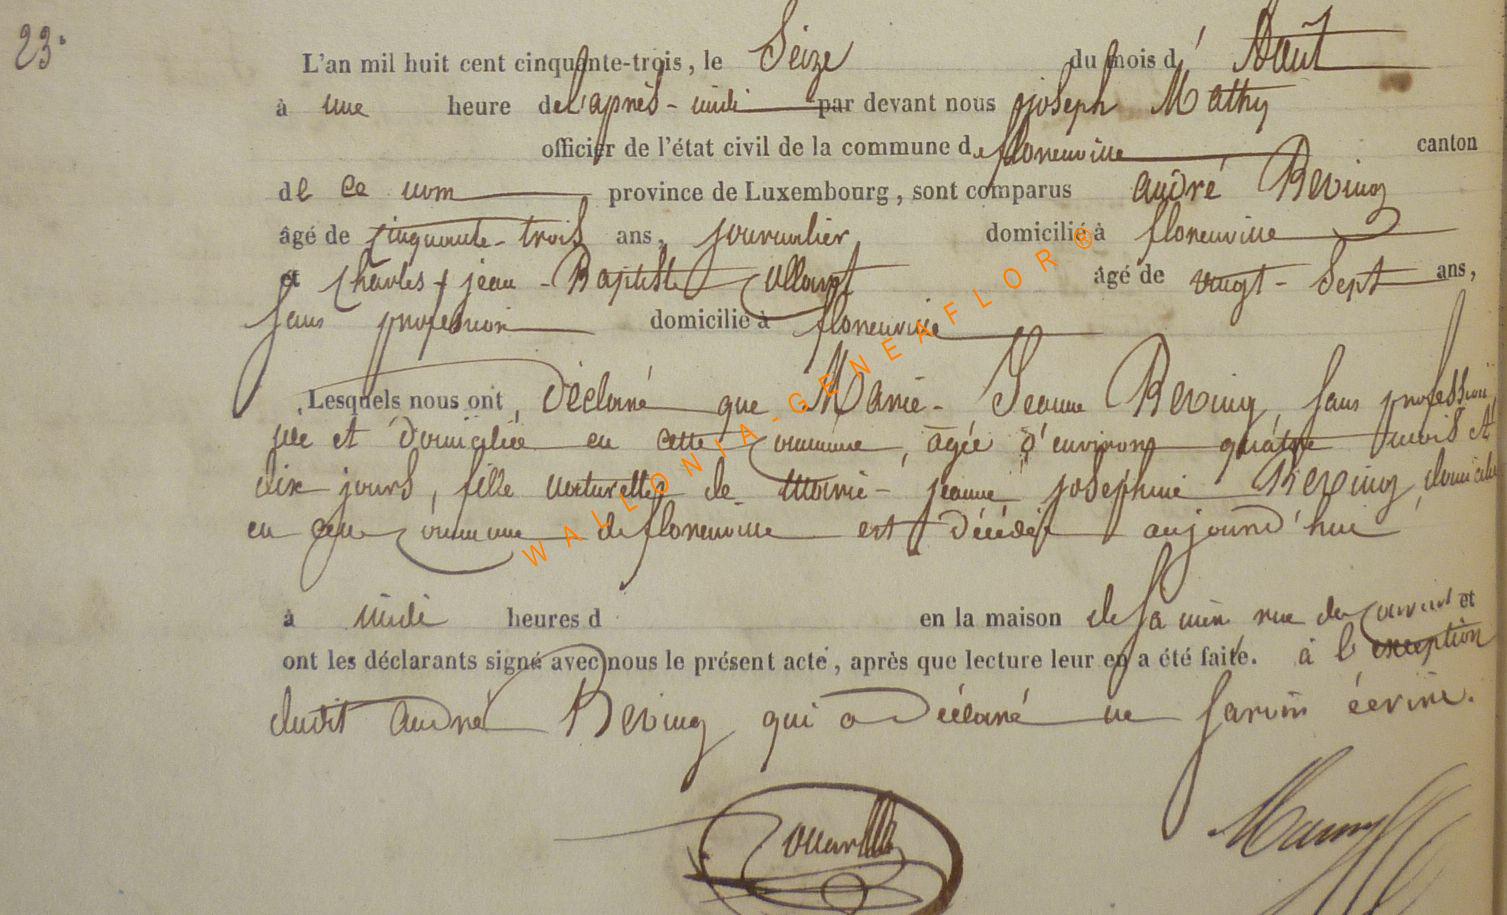 23.
L'an mil huit cent cinquante-trois, le Seize du mois d' Août
à une heure de l'après-midi par devant nous joseph Mathy
officier de l'état civil de la commune de florenville canton
de ce nom province de Luxembourg, sont comparus andré Reving
âgé de cinquante-trois ans, journalier domicilié à florenville
et Charles jean-Baptiste Collart âgé de vingt-Sept ans,
Sans profession domicilié à florenville
Lesquels nous ont déclaré que Marie-Jeanne Reving, Sans profession,
née et domiciliée en cette commune, agée d'environ quatre mois et
dix jours, fille naturelle de Marie-jeanne josephine Reving, domiciliée
en cette commune de florenville est décédée aujourd'hui
à midi heures d en la maison de Sa mère rue du et
ont les déclarants signé avec nous le présent acte, après que lecture leur en a été faite. à l'exception
dudit André Reving qui a déclaré ne Savoir écrire.
WALLONIA-GENEAFLOR®